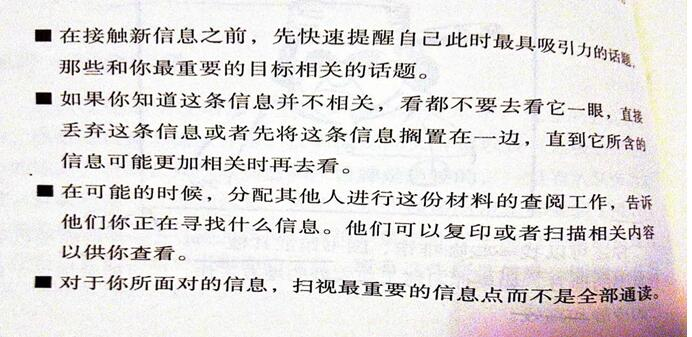 ■ 在接触新信息之前，先快速提醒自己此时最具吸引力的话题，
那些和你最重要的目标相关的话题。
■ 如果你知道这条信息并不相关，看都不要去看它一眼，直接
丢弃这条信息或者先将这条信息搁置在一边，直到它所含的
信息可能更加相关时再去看。
■ 在可能的时候，分配其他人进行这份材料的查阅工作，告诉
他们你正在寻找什么信息。他们可以复印或者扫描相关内容
以供你查看。
■ 对于你所面对的信息，扫视最重要的信息点而不是全部通读。